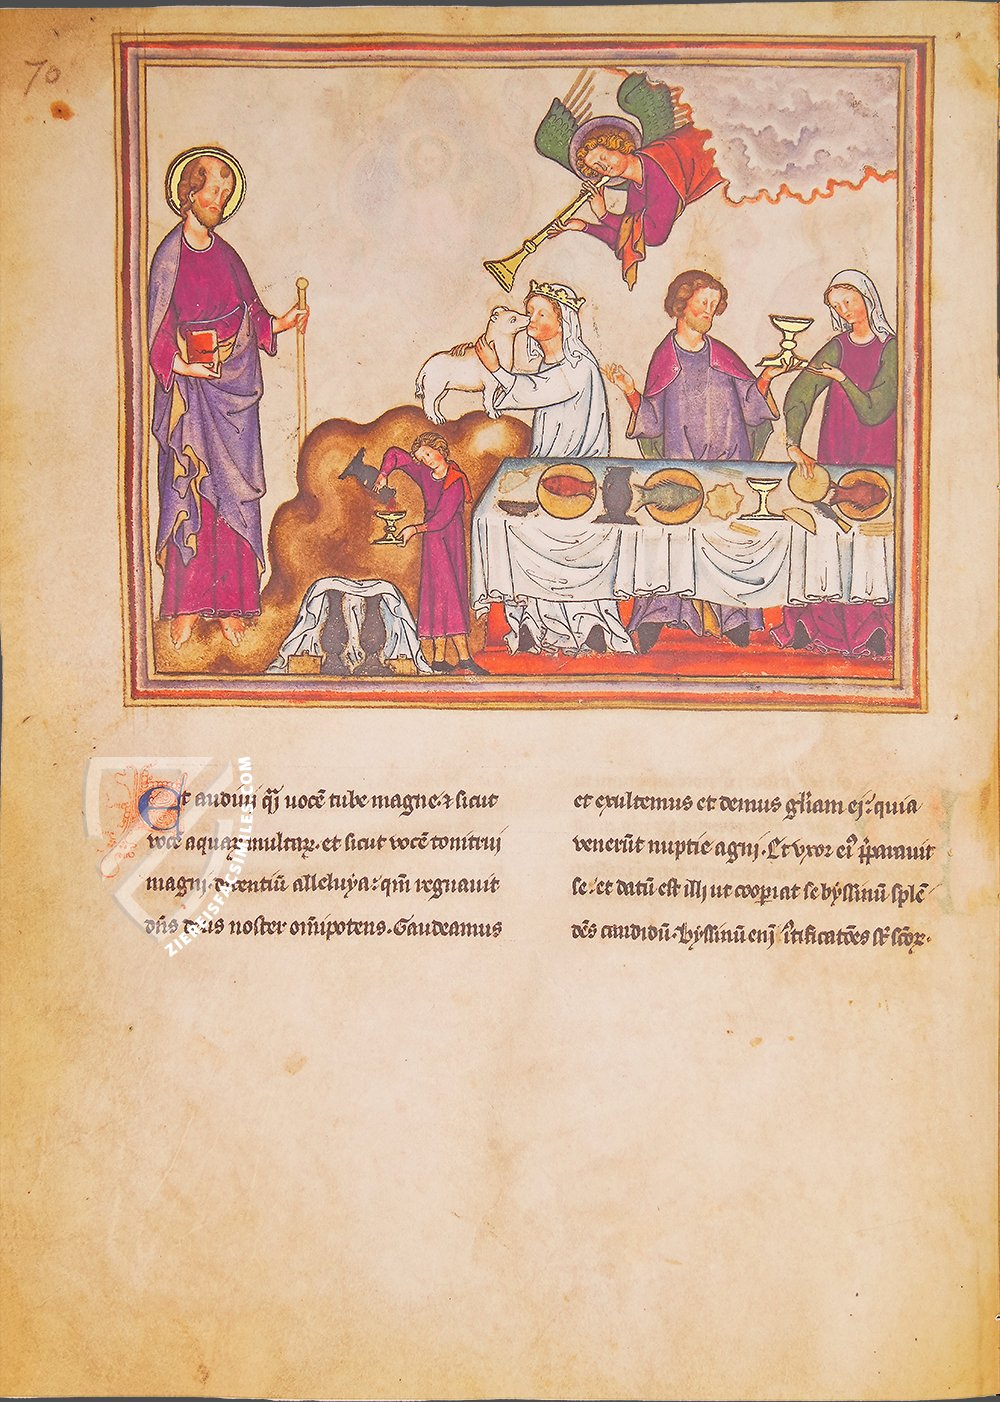 70
Et audiui q̄i uocē tube magne ⁊ sicut
vocē aquaꝝ multaꝝ. et sicut vocē tonitrui
magnj. dicentiū alleluya: qm̄ regnauit
dn̄s deus noster om̄ipotens. Gaudeamus
et exultemus et demus gl̄iam ej: quia
venerūt nuptie agnj. Et vxor ei᾽ p̄parauit
se. et datū est illj ut cooꝑiat se byssinū splē
dēs candidū. byssinū enj̄ iustificatōes sūt sc̄oꝝ.
ZIEREISFACSIMILES.COM